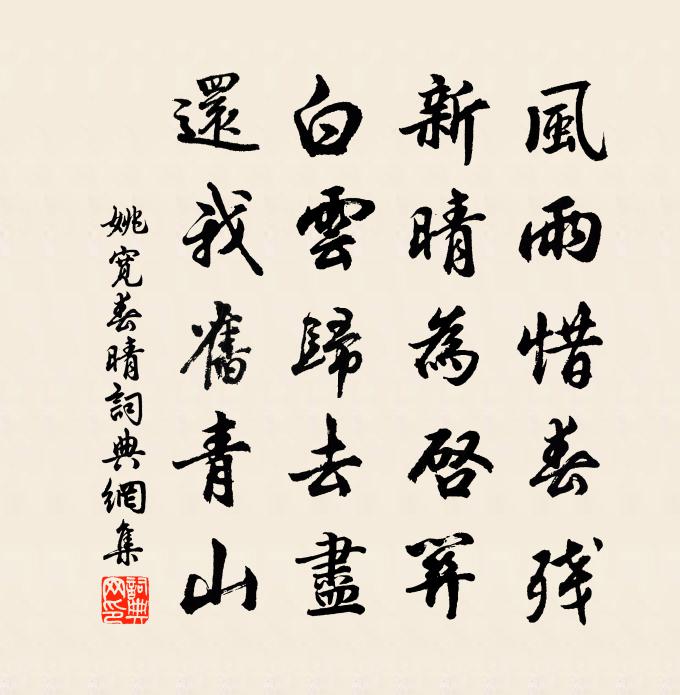 風雨惜春殘
新晴為啓關
白雲歸去盡
還我舊青山
姚寬春晴詞典網集
詞典網印